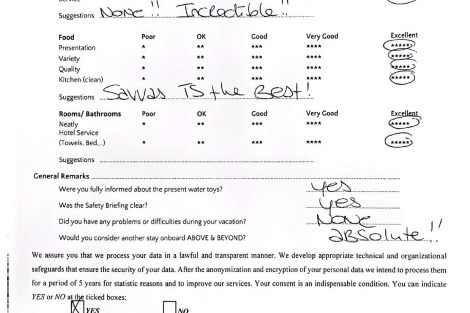 Suggestions None!! Incredible!!
Food Poor OK Good Very Good Excellent
Presentation * ** *** **** *****
Variety * ** *** **** *****
Quality * ** *** **** *****
Kitchen (clean) * ** *** **** *****
Suggestions Savvas IS the Best!
Rooms/ Bathrooms Poor OK Good Very Good Excellent
Neatly * ** *** **** *****
Hotel Service
(Towels, Bed...) * ** *** **** *****
Suggestions
General Remarks
Were you fully informed about the present water toys? yes
Was the Safety Briefing clear? yes
Did you have any problems or difficulties during your vacation? None
Would you consider another stay onboard ABOVE & BEYOND? absolute!!
We assure you that we process your data in a lawful and transparent manner. We develop appropriate technical and organizational
safeguards that ensure the security of your data. After the anonymization and encryption of your personal data we intend to process them
for a period of 5 years for statistic reasons and to improve our services. Your consent is an indispensable condition. You can indicate
YES or NO at the ticked boxes:
X YES NO